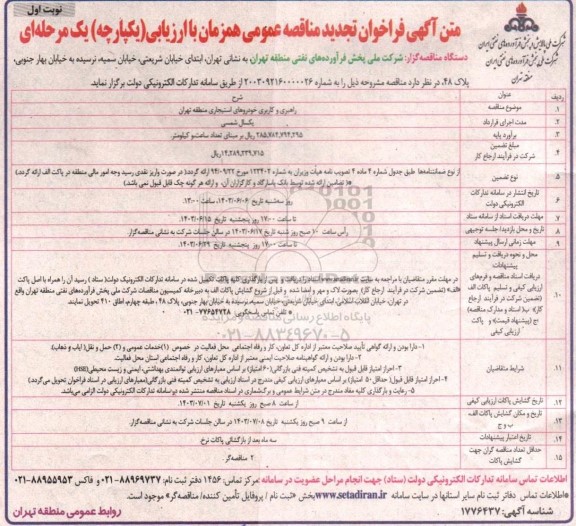 نوبت اول
متن آگهی فراخوان تجدید مناقصه عمومی همزمان با ارزیابی(یکپارچه) یک مرحله‌ای
شرکت ملی پالایش و پخش فرآورده‌های نفتی ایران
شرکت ملی پخش فرآورده‌های نفتی ایران
منطقه تهران
دستگاه مناقصه‌گزار: شرکت ملی پخش فرآورده‌های نفتی منطقه تهران به نشانی تهران، ابتدای خیابان شریعتی، خیابان سمیه، نرسیده به خیابان بهار جنوبی،
پلاک ۴۸، در نظر دارد مناقصه مشروحه ذیل را به شماره ۲۰۰۳۰۹۲۱۶۰۰۰۰۲۶ از طریق سامانه تدارکات الکترونیکی دولت برگزار نماید.
ردیف عنوان شرح
۱ موضوع مناقصه راهبری و کاربری خودروهای استیجاری منطقه تهران
۲ مدت اجرای قرارداد یکسال شمسی
۳ برآورد پایه ۲۸۵,۷۸۲,۷۹۴,۲۹۵ ریال بر مبنای تعداد ساعت‌و کیلومتر
۴ مبلغ تضمین شرکت در فرآیند ارجاع کار ۱۴,۲۸۹,۲۳۹,۷۱۵ ریال
۵ نوع تضمین از نوع ضمانتنامه‌ها طبق جدول شماره ۴ ماده ۴ تصویب نامه هیأت وزیران به شماره ۱۲۳۴۰۲ مورخ ۹۴/۰۹/۲۲ ارائه گردد( در صورت واریز نقدی رسید وجه امور مالی منطقه در پاکت الف ارائه گردد)
( تضامین ارائه شده توسط بانک پاسارگاد و کارگزاران آن، و ارائه هر گونه چک قابل قبول نمی باشد)
۶ تاریخ انتشار در سامانه تدارکات الکترونیکی دولت روز سه‌شنبه تاریخ ۱۴۰۳/۰۶/۰۶، ساعت ۱۳:۰۰
۷ مهلت دریافت اسناد از سامانه ستاد تا ساعت ۱۷:۰۰ روز پنجشنبه تاریخ ۱۴۰۳/۰۶/۱۵
۸ تاریخ و محل بازدید/ جلسه توجیهی رأس ساعت ۱۰ صبح روز شنبه تاریخ ۱۴۰۳/۰۶/۱۷ در سالن جلسات شرکت به نشانی مناقصه‌گزار
۹ مهلت زمانی ارسال پیشنهاد تا ساعت ۱۷:۰۰ روز پنجشنبه تاریخ ۱۴۰۳/۰۶/۲۹
۱۰ محل و نحوه دریافت و تسلیم پیشنهادات
دریافت اسناد مناقصه و فرم‌های ارزیابی کیفی و تسلیم پاکات الف (تضمین شرکت در فرآیند ارجاع کار)- ب(اسناد و مدارک مناقصه) ج (پیشنهاد قیمت) و پاکت ارزیابی کیفی
تلفن تماس پاسخگویی: ۷۷۶۵۴۷۲۸ -۰۲۱
۰۲۱-۸۸۳۴۹۶۷۰-۵
۱۱ شرایط متقاضیان ۱- دارا بودن و ارائه گواهی تأیید صلاحیت معتبر از اداره کل تعاون، کار و رفاه اجتماعی محل فعالیت در خصوص (۱)خدمات عمومی و (۲) حمل و نقل( ایاب و ذهاب).
۲- دارا بودن و ارائه گواهینامه صلاحیت ایمنی معتبر از اداره کل تعاون، کار و رفاه اجتماعی استان محل فعالیت
۵- رعایت و بارگذاری کلیه مفاد مندرج در متن شرایط عمومی و برگ‌شماری در اسناد مناقصه منتشر شده در سامانه تدارکات الکترونیکی دولت الزامی می‌باشد
۱۲ تاریخ گشایش پاکات ارزیابی کیفی از ساعت ۸ صبح روز یکشنبه تاریخ ۱۴۰۳/۰۷/۰۱
۱۳ تاریخ و مکان گشایش پاکات الف و ب و ج از ساعت ۹ صبح روز یکشنبه تاریخ ۱۴۰۳/۰۷/۰۸ در سالن جلسات شرکت به نشانی مناقصه‌گزار.
۱۴ تاریخ اعتبار پیشنهادات سه ماه بعد از بازگشائی پاکات نرخ.
۱۵ حداقل تعداد مناقصه گران جهت گشایش پاکات ۲ مناقصه‌گر
اطلاعات تماس سامانه تدارکات الکترونیکی دولت (ستاد) جهت انجام مراحل عضویت در سامانه: مرکز تماس: ۱۴۵۶ دفتر ثبت نام: ۸۸۹۶۹۷۳۷-۰۲۱ و فاکس ۸۸۹۵۵۹۵۳-۰۲۱
اطلاعات تماس دفاتر ثبت نام سایر استانها در سایت سامانه www.setadiran.ir بخش «ثبت نام / پروفایل تأمین کننده/ مناقصه‌گر» موجود است.
شناسه آگهی: ۱۷۷۶۴۳۷
روابط عمومی منطقه تهران